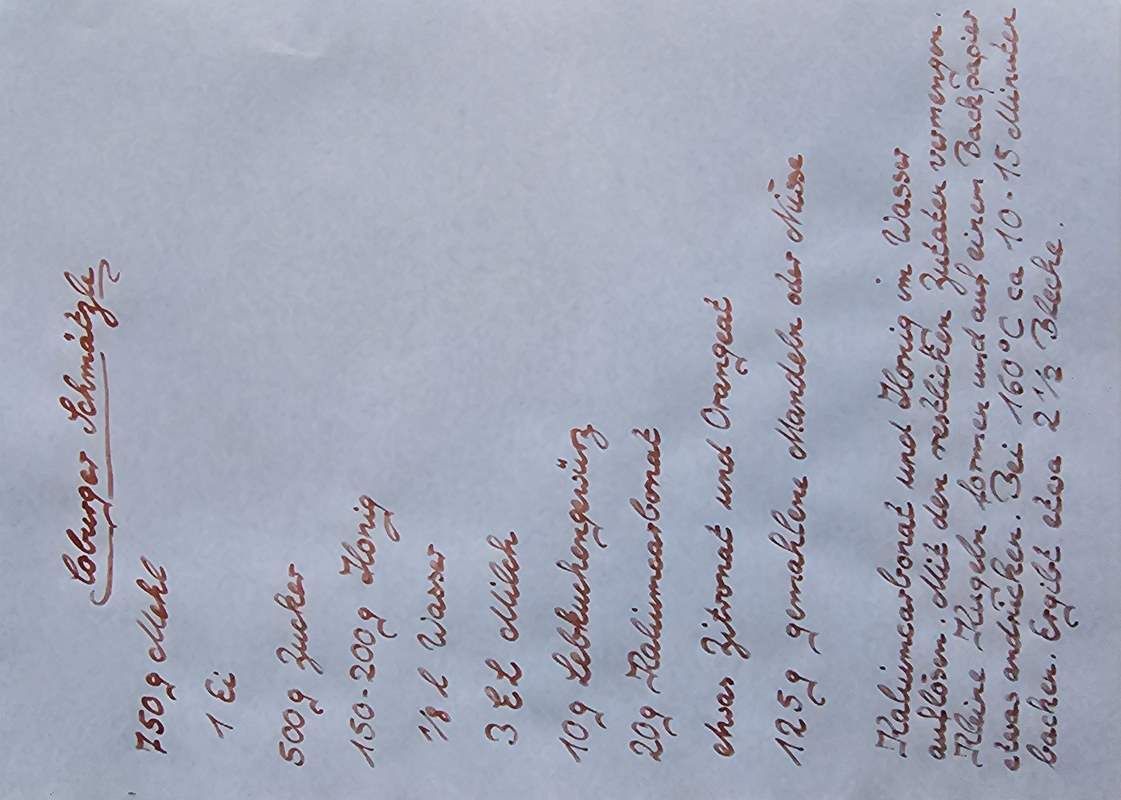 Coburger Schmätzle
750g Mehl
1 Ei
500g Zucker
150-200g Honig
1/8 l Wasser
3 EL Milch
10g Lebkuchengewürz
20g Kaliumcarbonat
etwas Zitronat und Orangeat
125g gemahlene Mandeln oder Nüsse
Kaliumcarbonat und Honig im Wasser
auflösen. Mit den restlichen Zutaten vermengen.
Kleine Kugeln formen und auf einem Backpapier
etwas andrücken. Bei 160°C ca 10-15 Minuten
backen. Ergibt etwa 2 1/2 Bleche.